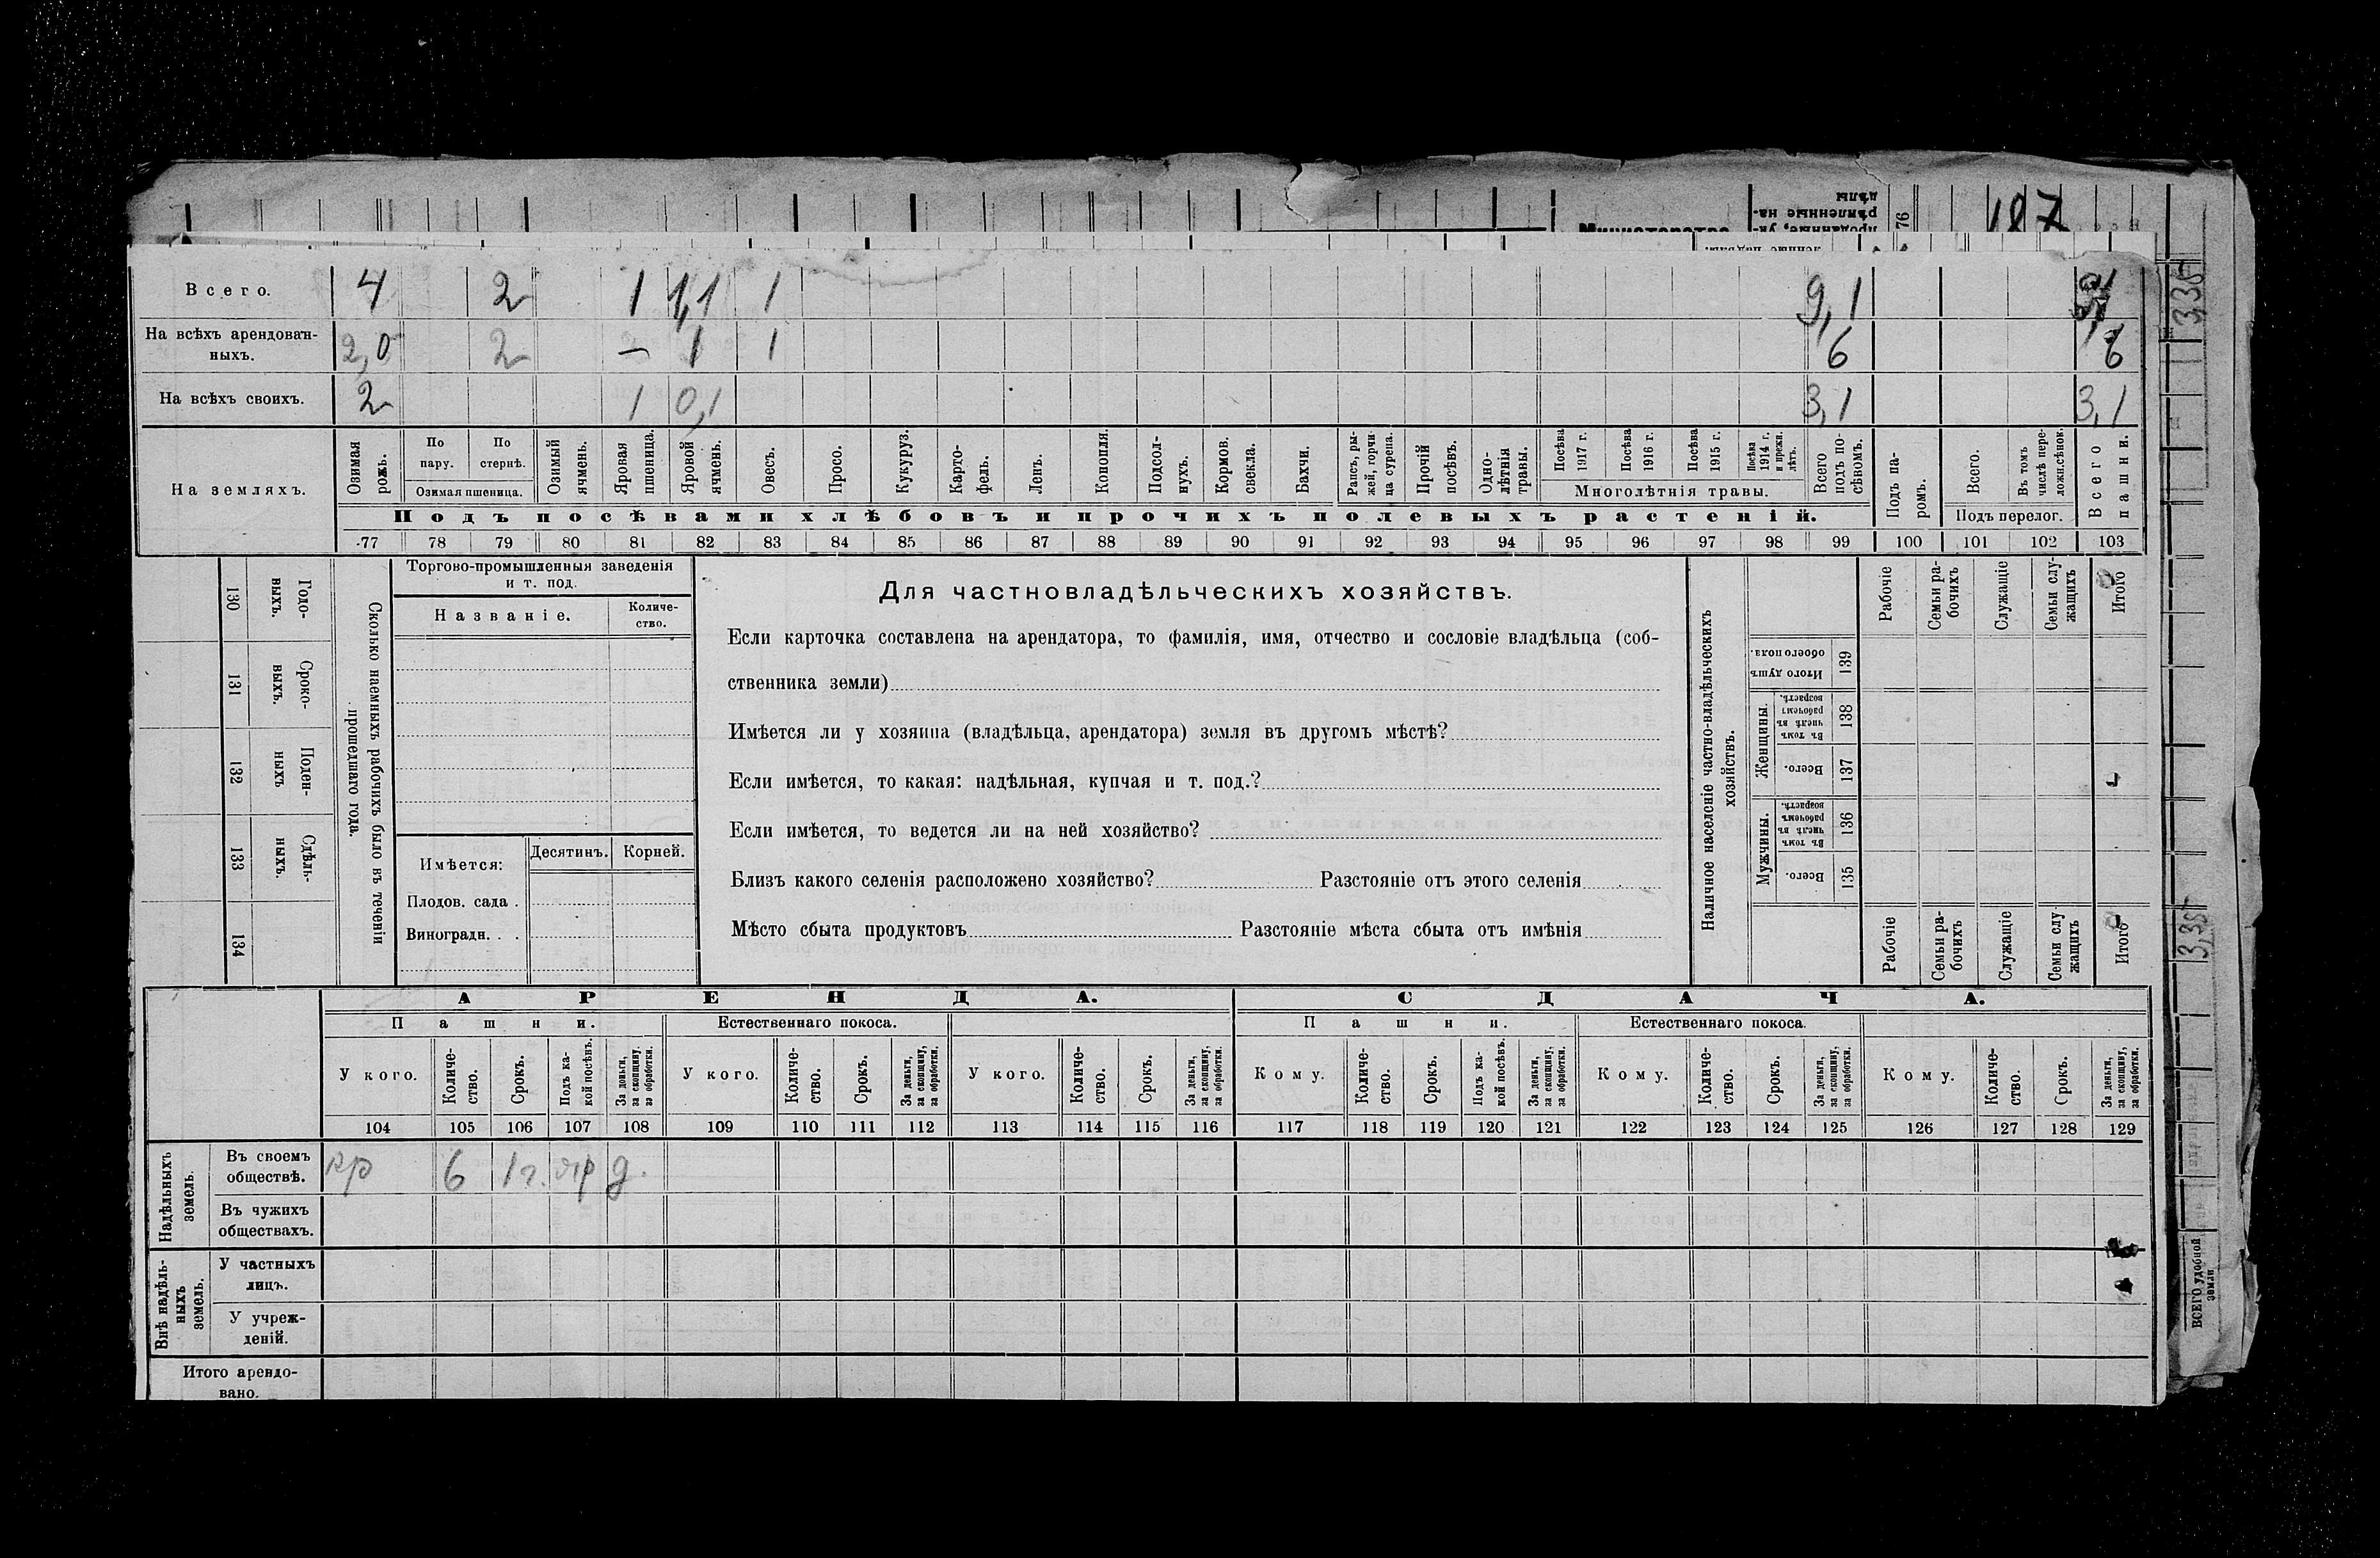 187
76
Всего. 4 2 1 1,1 1 9,1
На всѣхъ арендован-
ныхъ. 2,0 2 – 1 1 6 6
На всѣхъ своихъ. 2 1 0,1 3,1 3,1
На земляхъ.
Озимая рожь.
По пару.
По стернѣ.
Озимая пшеница.
Озимый ячмень.
Яровая пшеница.
Яровой ячмень.
Овесъ.
Просо.
Кукуруз.
Карто-
фель.
Ленъ.
Конопля.
Подсол-
нухъ.
Кормов. свекла.
Бахчи.
Рапсъ, ры-
жей, горчи-
ца сурепа.
Прочій посѣвъ.
Одно-
лѣтнія травы.
Посѣва 1917 г.
Посѣва 1916 г.
Посѣва 1915 г.
Посѣва 1914 г. и прежн. лѣтъ.
Многолѣтнія травы.
Всего подъ по-
сѣвомъ.
Подъ посѣвами хлѣбовъ и прочихъ полевыхъ растеній.
Подъ па-
ромъ.
Всего.
Въ томъ числѣ пере-
ложн.сѣнок.
Подъ перелог.
Всего пашни.
77 78 79 80 81 82 83 84 85 86 87 88 89 90 91 92 93 94 95 96 97 98 99 100 101 102 103
Сколько наемныхъ рабочихъ было въ теченіи
прошедшаго года.
Годо-
выхъ.
130
Сроко-
выхъ.
131
Поден-
ныхъ
132
Сдѣль-
ныхъ.
133
134
Торгово-промышленныя заведенія
и т. под.
Названіе.
Количе-
ство.
Имѣется:
Десятинъ. Корней.
Плодов. сада .
Виноградн. . .
Для частновладѣльческихъ хозяйствъ.
Если карточка составлена на арендатора, то фамилія, имя, отчество и сословіе владѣльца (соб-
ственника земли)
Имѣется ли у хозяина (владѣльца, арендатора) земля въ другомъ мѣстѣ?
Если имѣется, то какая: надѣльная, купчая и т. под.?
Если имѣется, то ведется ли на ней хозяйство?
Близъ какого селенія расположено хозяйство? Разстояніе отъ этого селенія
Мѣсто сбыта продуктовъ Разстояніе мѣста сбыта отъ имѣнія
Наличное населеніе частно-владѣльческихъ
хозяйствъ.
Рабочіе
Семьи ра-
бочихъ
Служащіе
Семьи слу-
жащихъ
Итого
Итого душъ
обоего пола.
139
Женщины.
Въ томъ числѣ въ рабочемъ возрастѣ.
138
Всего.
137
Мужчины.
Въ томъ числѣ въ рабочемъ возрастѣ.
136
Всего.
135
Рабочіе
Семьи ра-
бочихъ
Служащіе
Семьи слу-
жащихъ
Итого
АРЕНДА. СДАЧА.
Пашни. Естественнаго покоса. Пашни. Естественнаго покоса.
У кого.
Количе-
ство.
Срокъ.
Подъ ка-
кой посѣвъ.
За деньги,
за скопщину,
за обработки.
У кого.
Количе-
ство.
Срокъ.
За деньги,
за скопщину,
за обработки.
У кого.
Количе-
ство.
Срокъ.
За деньги,
за скопщину,
за обработки.
Кому.
Количе-
ство.
Срокъ.
Подъ ка-
кой посѣвъ.
За деньги,
за скопщину,
за обработки.
Кому.
Количе-
ство.
Срокъ.
За деньги,
за скопщину,
за обработки.
Кому.
Количе-
ство.
Срокъ.
За деньги,
за скопщину,
за обработки.
104 105 106 107 108 109 110 111 112 113 114 115 116 117 118 119 120 121 122 123 124 125 126 127 128 129
Надѣльныхъ
земель.
Въ своемъ
обществѣ. кр 6 1 г. яр д.
Въ чужихъ
обществахъ.
Внѣ надѣль-
ныхъ
земель.
У частныхъ
лицъ.
У учреж-
деній.
Итого арендо-
вано.
ВСЕГО удобной
земли